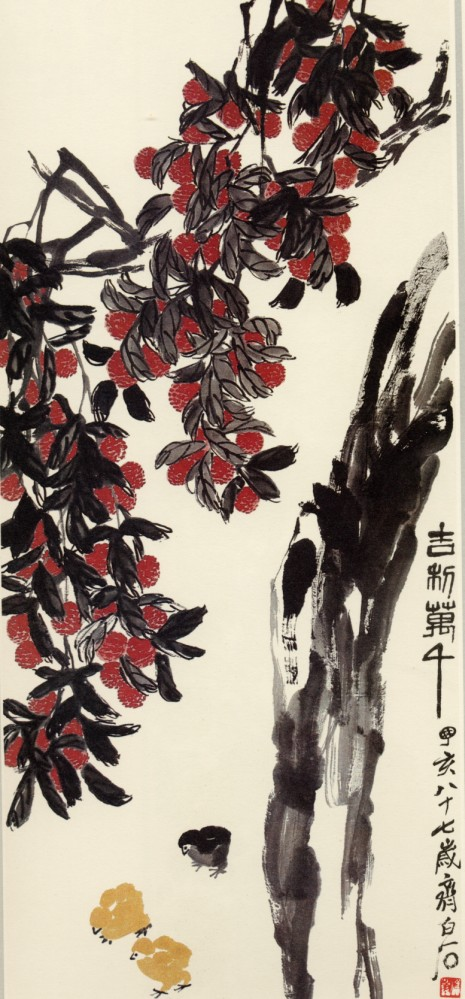 吉利萬千甲亥八十七歲齊白石